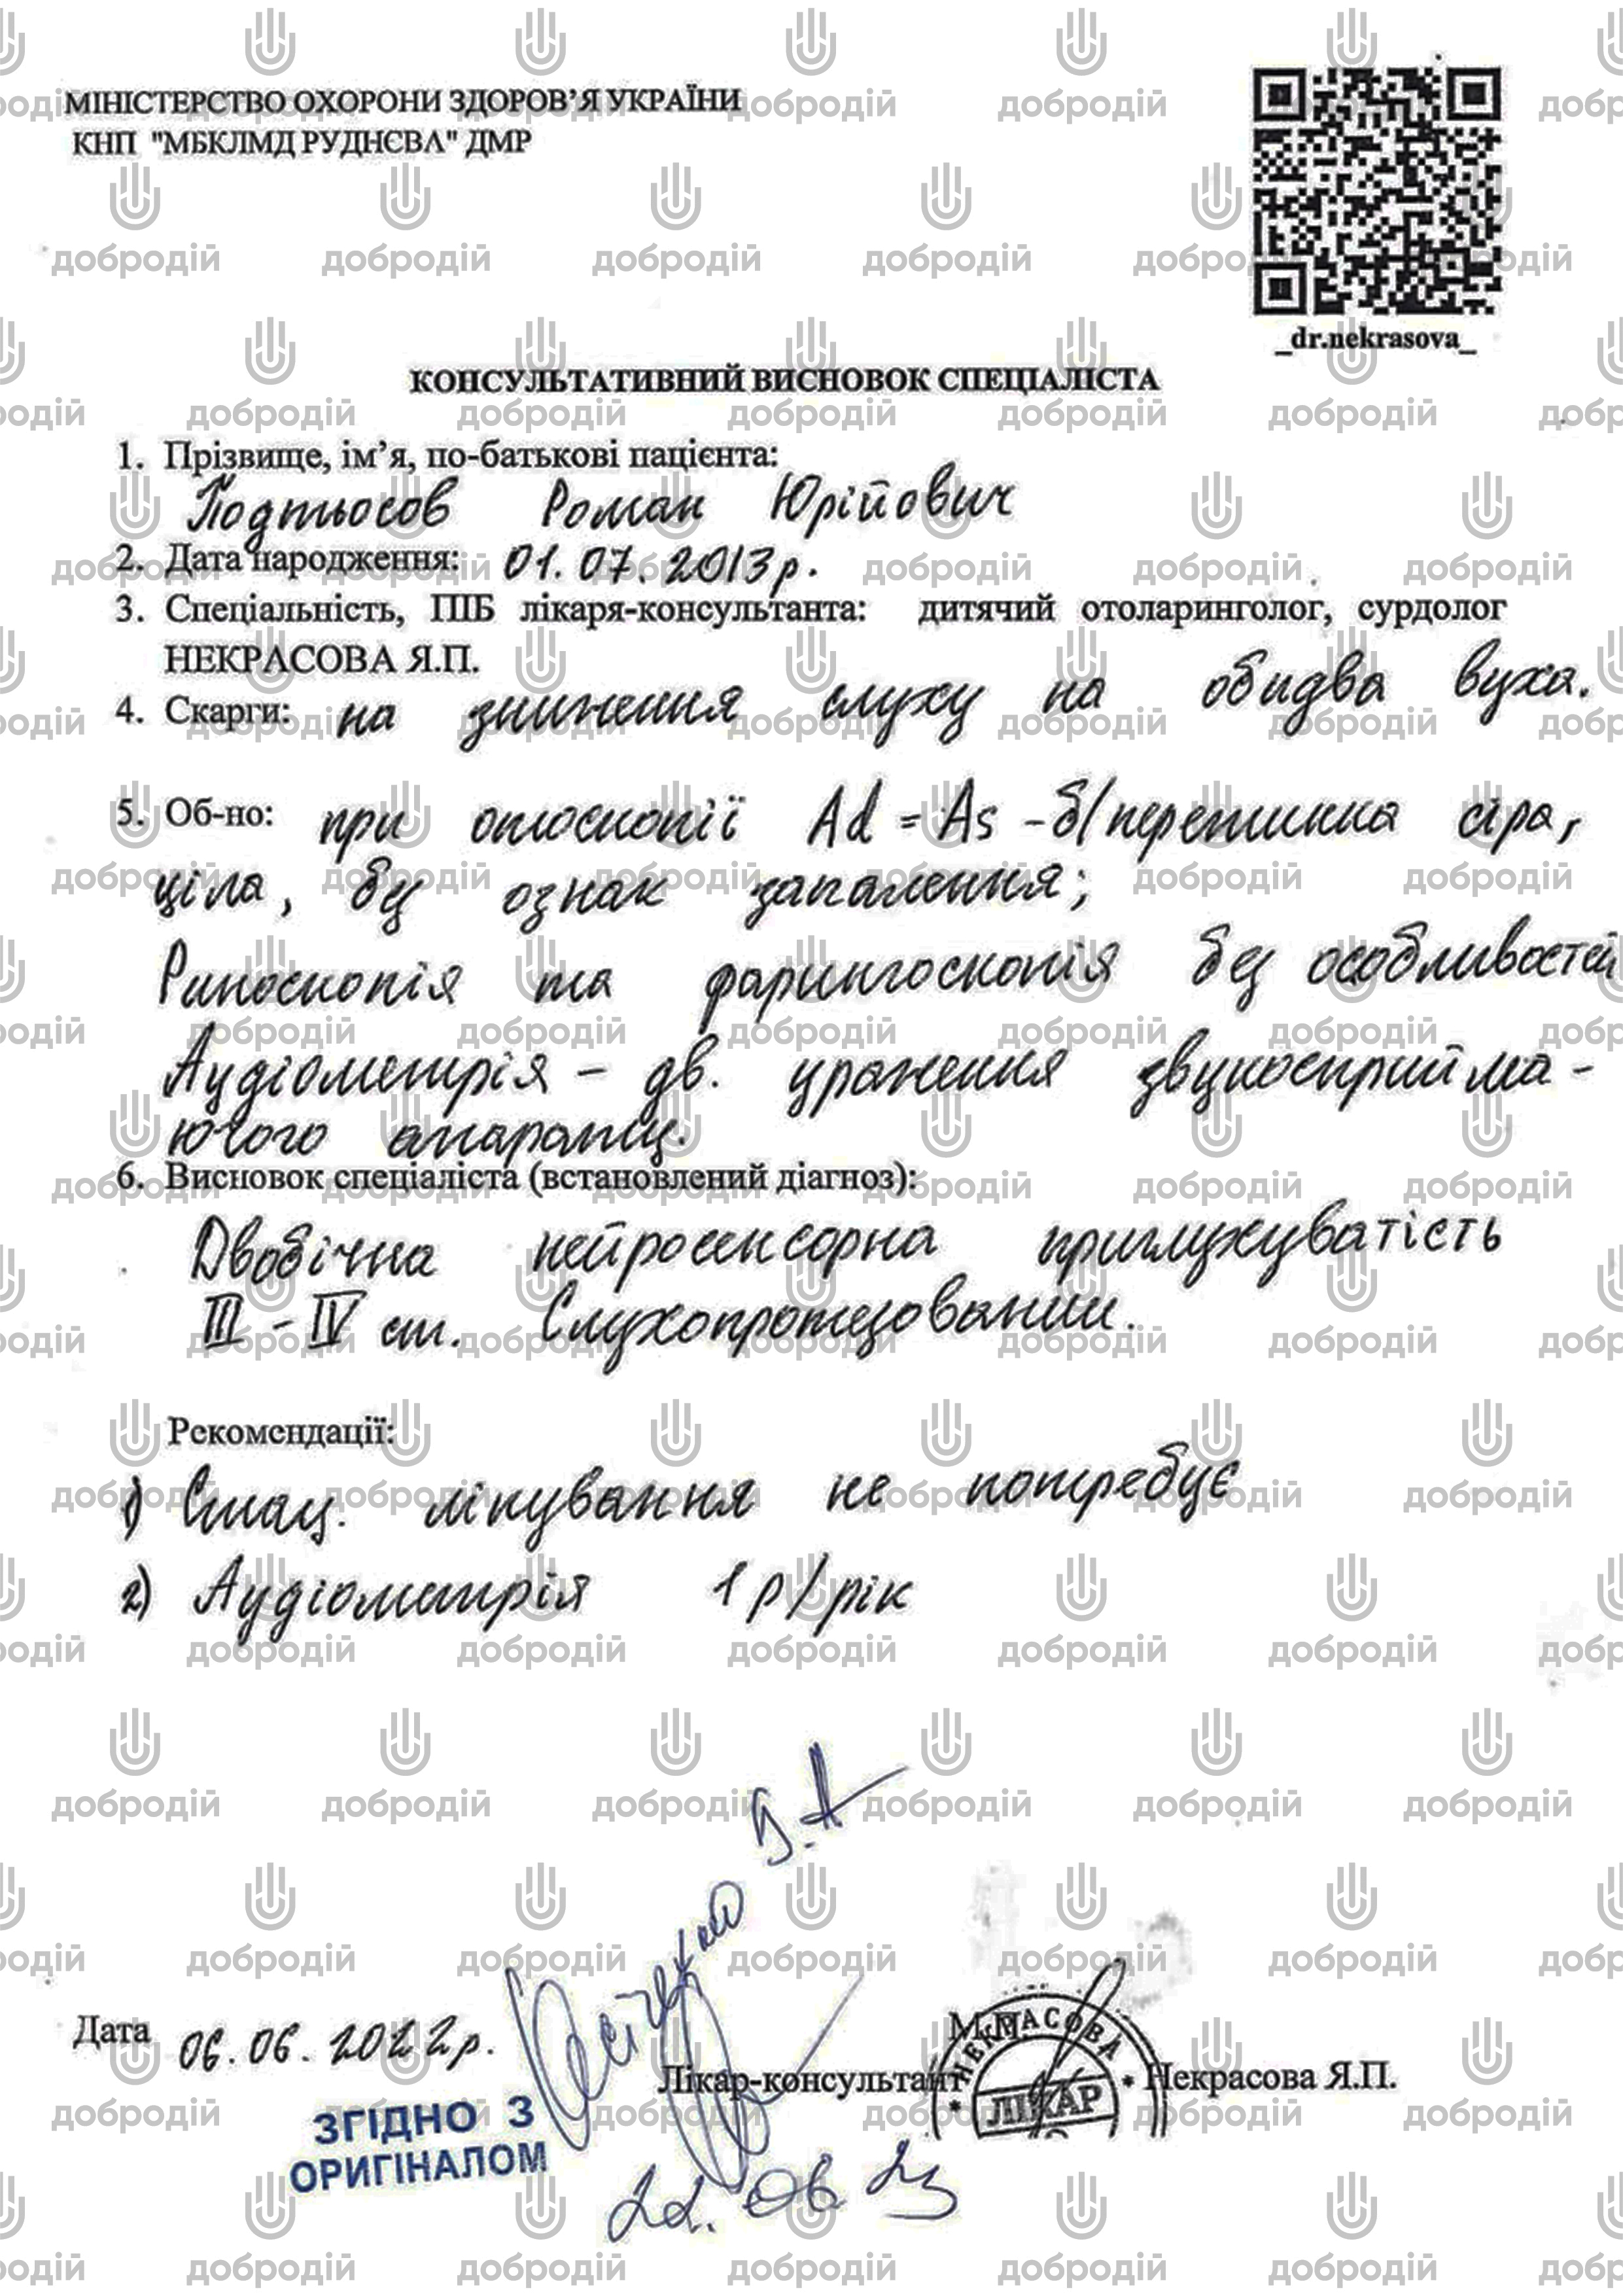 МІНІСТЕРСТВО ОХОРОНИ ЗДОРОВ'Я УКРАЇНИ
КНП "МБКЛМД РУДНЄВА" ДМР
_dr.nekrasova_
КОНСУЛЬТАТИВНИЙ ВИСНОВОК СПЕЦІАЛІСТА
1. Прізвище, ім'я, по-батькові пацієнта:
Подтьосов Роман Юрійович
2. Дата народження: 01.07.2013р.
3. Спеціальність, ПІБ лікаря-консультанта: дитячий отоларинголог, сурдолог
НЕКРАСОВА Я.П.
4. Скарги: на зниження слуху на обидва вуха.
5. Об-но: при отоскопії Ad = As - б/перетинка сіра,
ціла, без ознак запалення;
Риноскопія та фарингоскопія без особливостей
Аудіометрія – дв. ураження звукосприйма-
ючого апарату.
6. Висновок спеціаліста (встановлений діагноз):
Двобічна нейросенсорна приглухуватість
III - IV ст. Слухопротезований.
Рекомендації:
1) Стац. лікування не потребує
2) Аудіометрія 1 р/рік
Дата 06.06.2022р.
М.П.
Лікар-консультант Некрасова Я.П.
НЕКРАСОВА
ЛІКАР
ЗГІДНО З
ОРИГІНАЛОМ
22.06.23
добродій